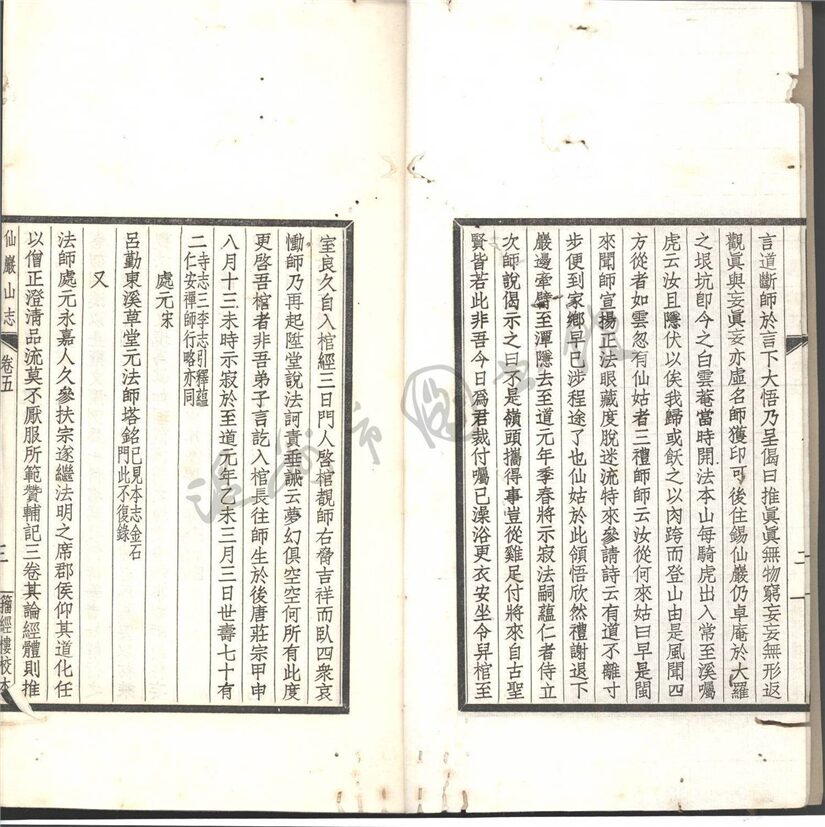 言道斷師於言下大悟乃呈偈曰推眞眞無物窮妄妄無形返
觀眞與妄眞妄亦虛名師獲印可後住錫仙巖仍卓庵於大羅
之垠坑卽今之白雲菴當時開法本山每騎虎出入常至溪囑
虎云汝且隱伏以俟我歸或飫之以肉跨而登山由是風聞四
方從者如雲忽有仙姑者三禮師師云汝從何來姑曰早是閩
來聞師宣揚正法眼藏度脫迷流特來參請詩云有道不離寸
步便到家鄉早已涉程途了也仙姑於此領悟欣然禮謝退下
巖邊牽犢至潭隱去至道元年季春將示寂法嗣蘊仁者侍立
次師說偈示之曰不是嶺頭攜得事豈從雞足付將來自古聖
賢皆若此非吾今日爲君裁付囑已澡浴更衣安坐令舁棺至
二
室良久自入棺經三日門人啓棺覩師右脅吉祥而臥四衆哀
慟師乃再起陞堂說法訶責垂誡云夢幻俱空空何所有此度
更啓吾棺者非吾弟子言訖入棺長往師生於後唐莊宗甲申
八月十三未時示寂於至道元年乙未三月三日世壽七十有
二寺志三李志引釋蘊
仁安禪師行略亦同
處元宋
呂勤東溪草堂元法師塔銘已見本志金石
門此不復錄
又
法師處元永嘉人久參扶宗遂繼法明之席郡侯仰其道化任
以僧正澄清品流莫不厭服所範贊輔記三卷其論經體則推
仙巖山志
卷五
三
籀經樓校本
溫州市圖書館